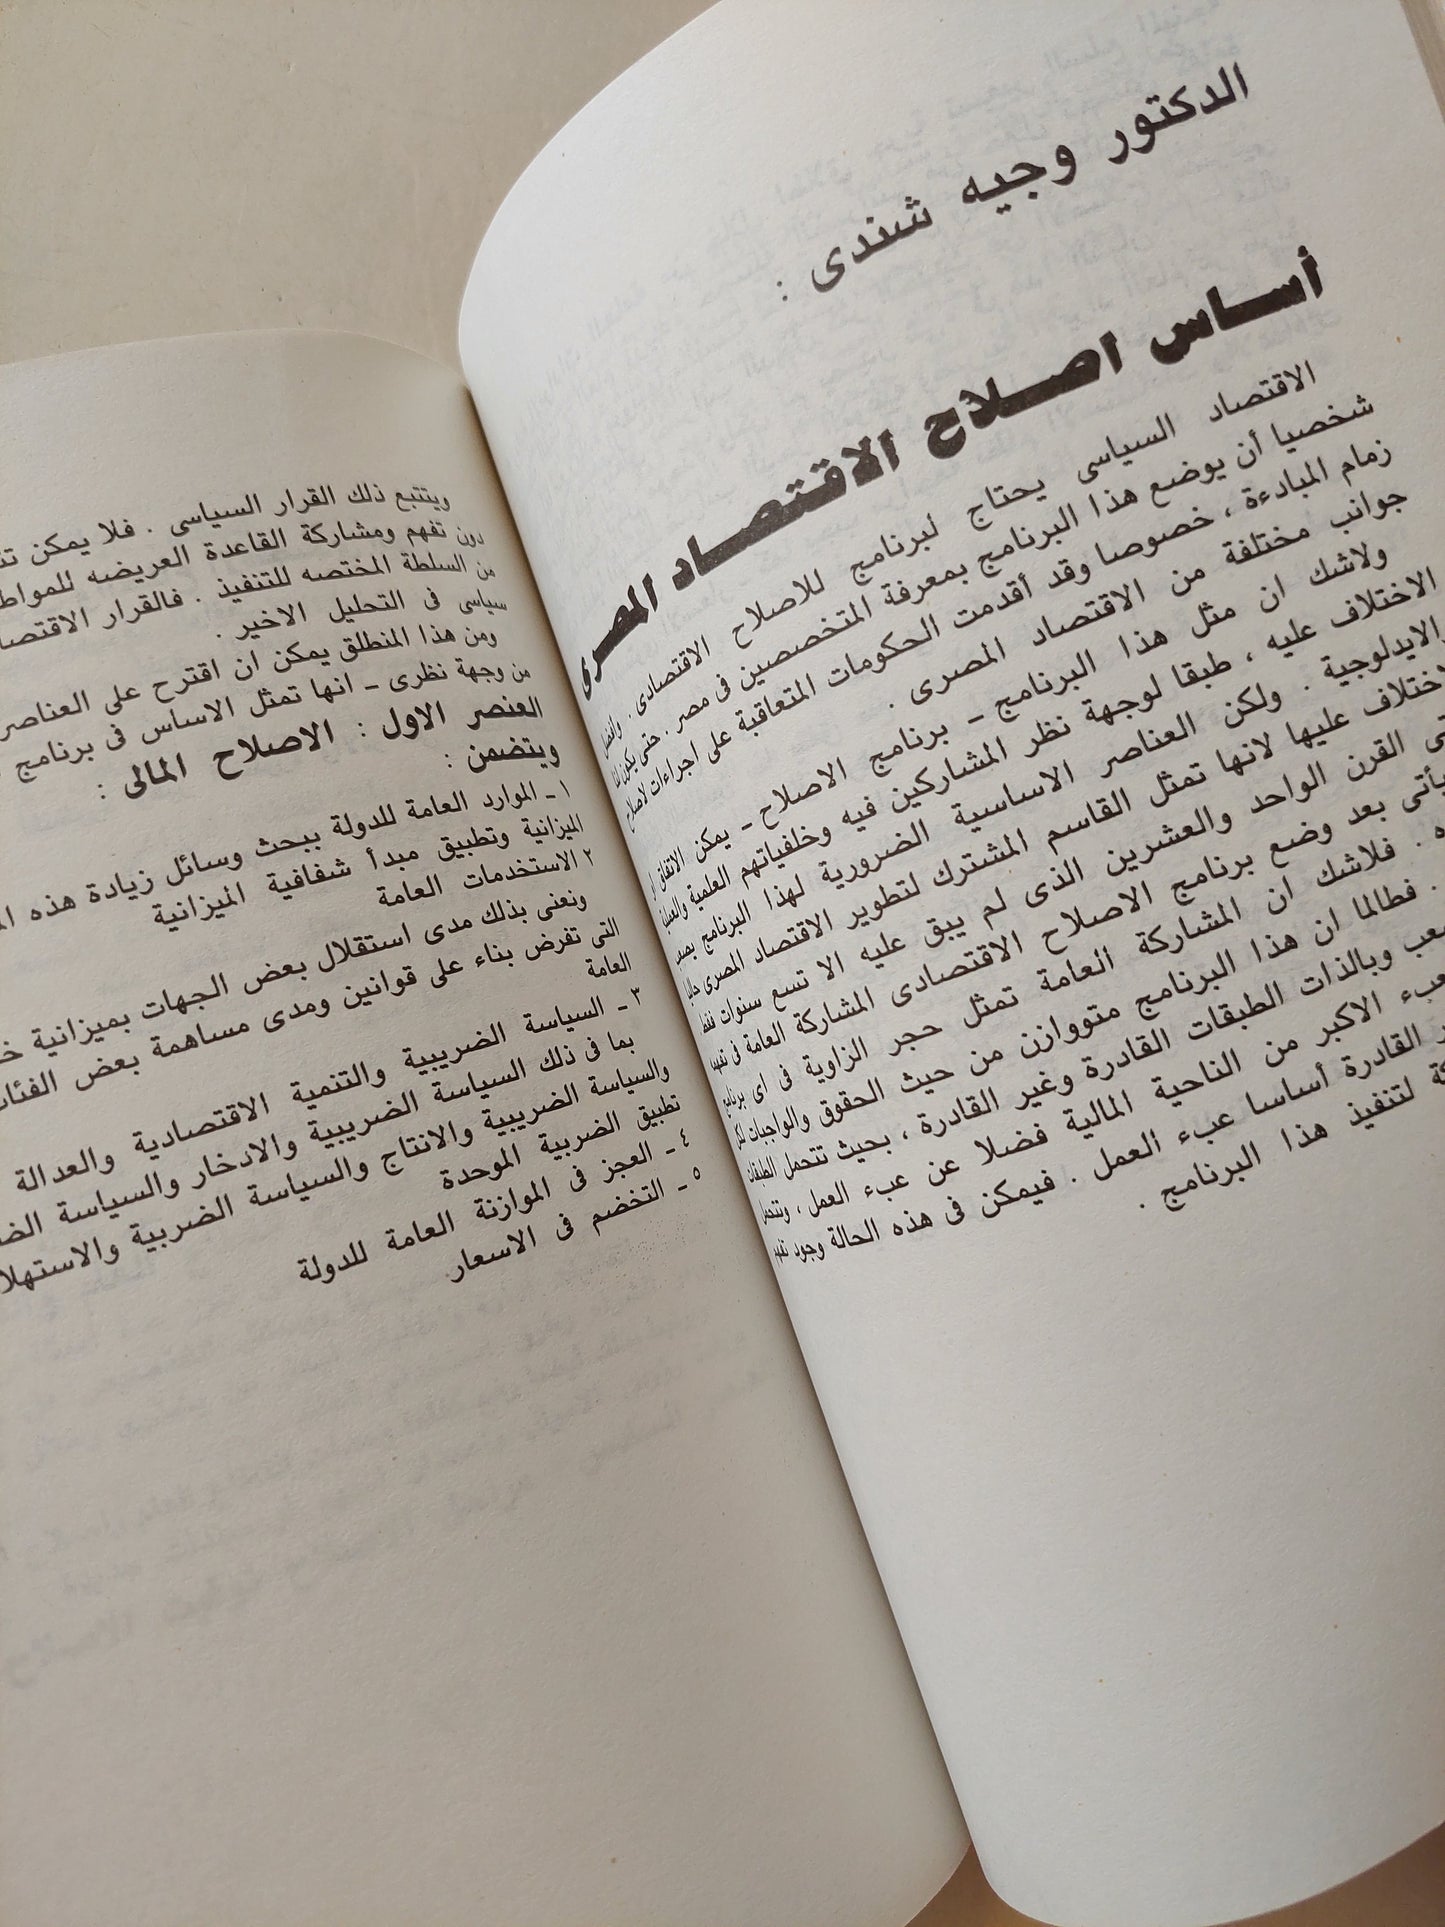 الدكتور وجيه شندى :
أساس اصلاح الاقتصاد المصرى
الاقتصاد السياسى يحتاج لبرنامج للاصلاح الاقتصادى . وافضل
شخصيا أن يوضع هذا البرنامج بمعرفة المتخصصين فى مصر . حتى يكون لنا
زمام المبادءة ، خصوصا وقد أقدمت الحكومات المتعاقبة على اجراءات لاصلاح
جوانب مختلفة من الاقتصاد المصرى .
ولاشك ان مثل هذا البرنامج - برنامج الاصلاح - يمكن الاتفاق او
الاختلاف عليه ، طبقا لوجهة نظر المشاركين فيه وخلفياتهم العلمية والعملية
الايدلوجية . ولكن العناصر الاساسية الضرورية لهذا البرنامج يصعب
الاختلاف عليها لانها تمثل القاسم المشترك لتطوير الاقتصاد المصرى حاليا
القرن الواحد والعشرين الذى لم يبق عليه الا تسع سنوات فقط
يأتى بعد وضع برنامج الاصلاح الاقتصادى المشاركة العامة فى تفهم
. فلاشك ان المشاركة العامة تمثل حجر الزاوية فى اى برنامج
. فطالما ان هذا البرنامج متووازن من حيث الحقوق والواجبات لكل
وبالذات الطبقات القادرة وغير القادرة ، بحيث تتحمل الطبقات
الاكبر من الناحية المالية فضلا عن عبء العمل ، وتتحمل
القادرة أساسا عبء العمل . فيمكن فى هذه الحالة وجود تفهم
لتنفيذ هذا البرنامج .
ويتتبع ذلك القرار السياسى . فلا يمكن
دون تفهم ومشاركة القاعدة العريضه
من السلطة المختصه للتنفيذ . فالقرار
سياسى فى التحليل الاخير .
ومن هذا المنطلق يمكن ان اقترح على العناصر
من وجهة نظرى - انها تمثل الاساس فى برنامج
العنصر الاول : الاصلاح المالى :
ويتضمن :
١ - الموارد العامة للدولة ببحث وسائل زيادة هذه
الميزانية وتطبيق مبدأ شفافية الميزانية
٢ الاستخدمات العامة
ونعنى بذلك مدى استقلال بعض الجهات بميزانية
التى تفرض بناء على قوانين ومدى مساهمة بعض
العامة
٣ - السياسة الضريبية والتنمية الاقتصادية والعدالة
بما فى ذلك السياسة الضريبية والادخار والسياسة
والسياسة الضريبية والانتاج والسياسة الضريبية
تطبيق الضريبية الموحدة
٤ - العجز فى الموازنة العامة للدولة
٥ - التخضم فى الاسعار